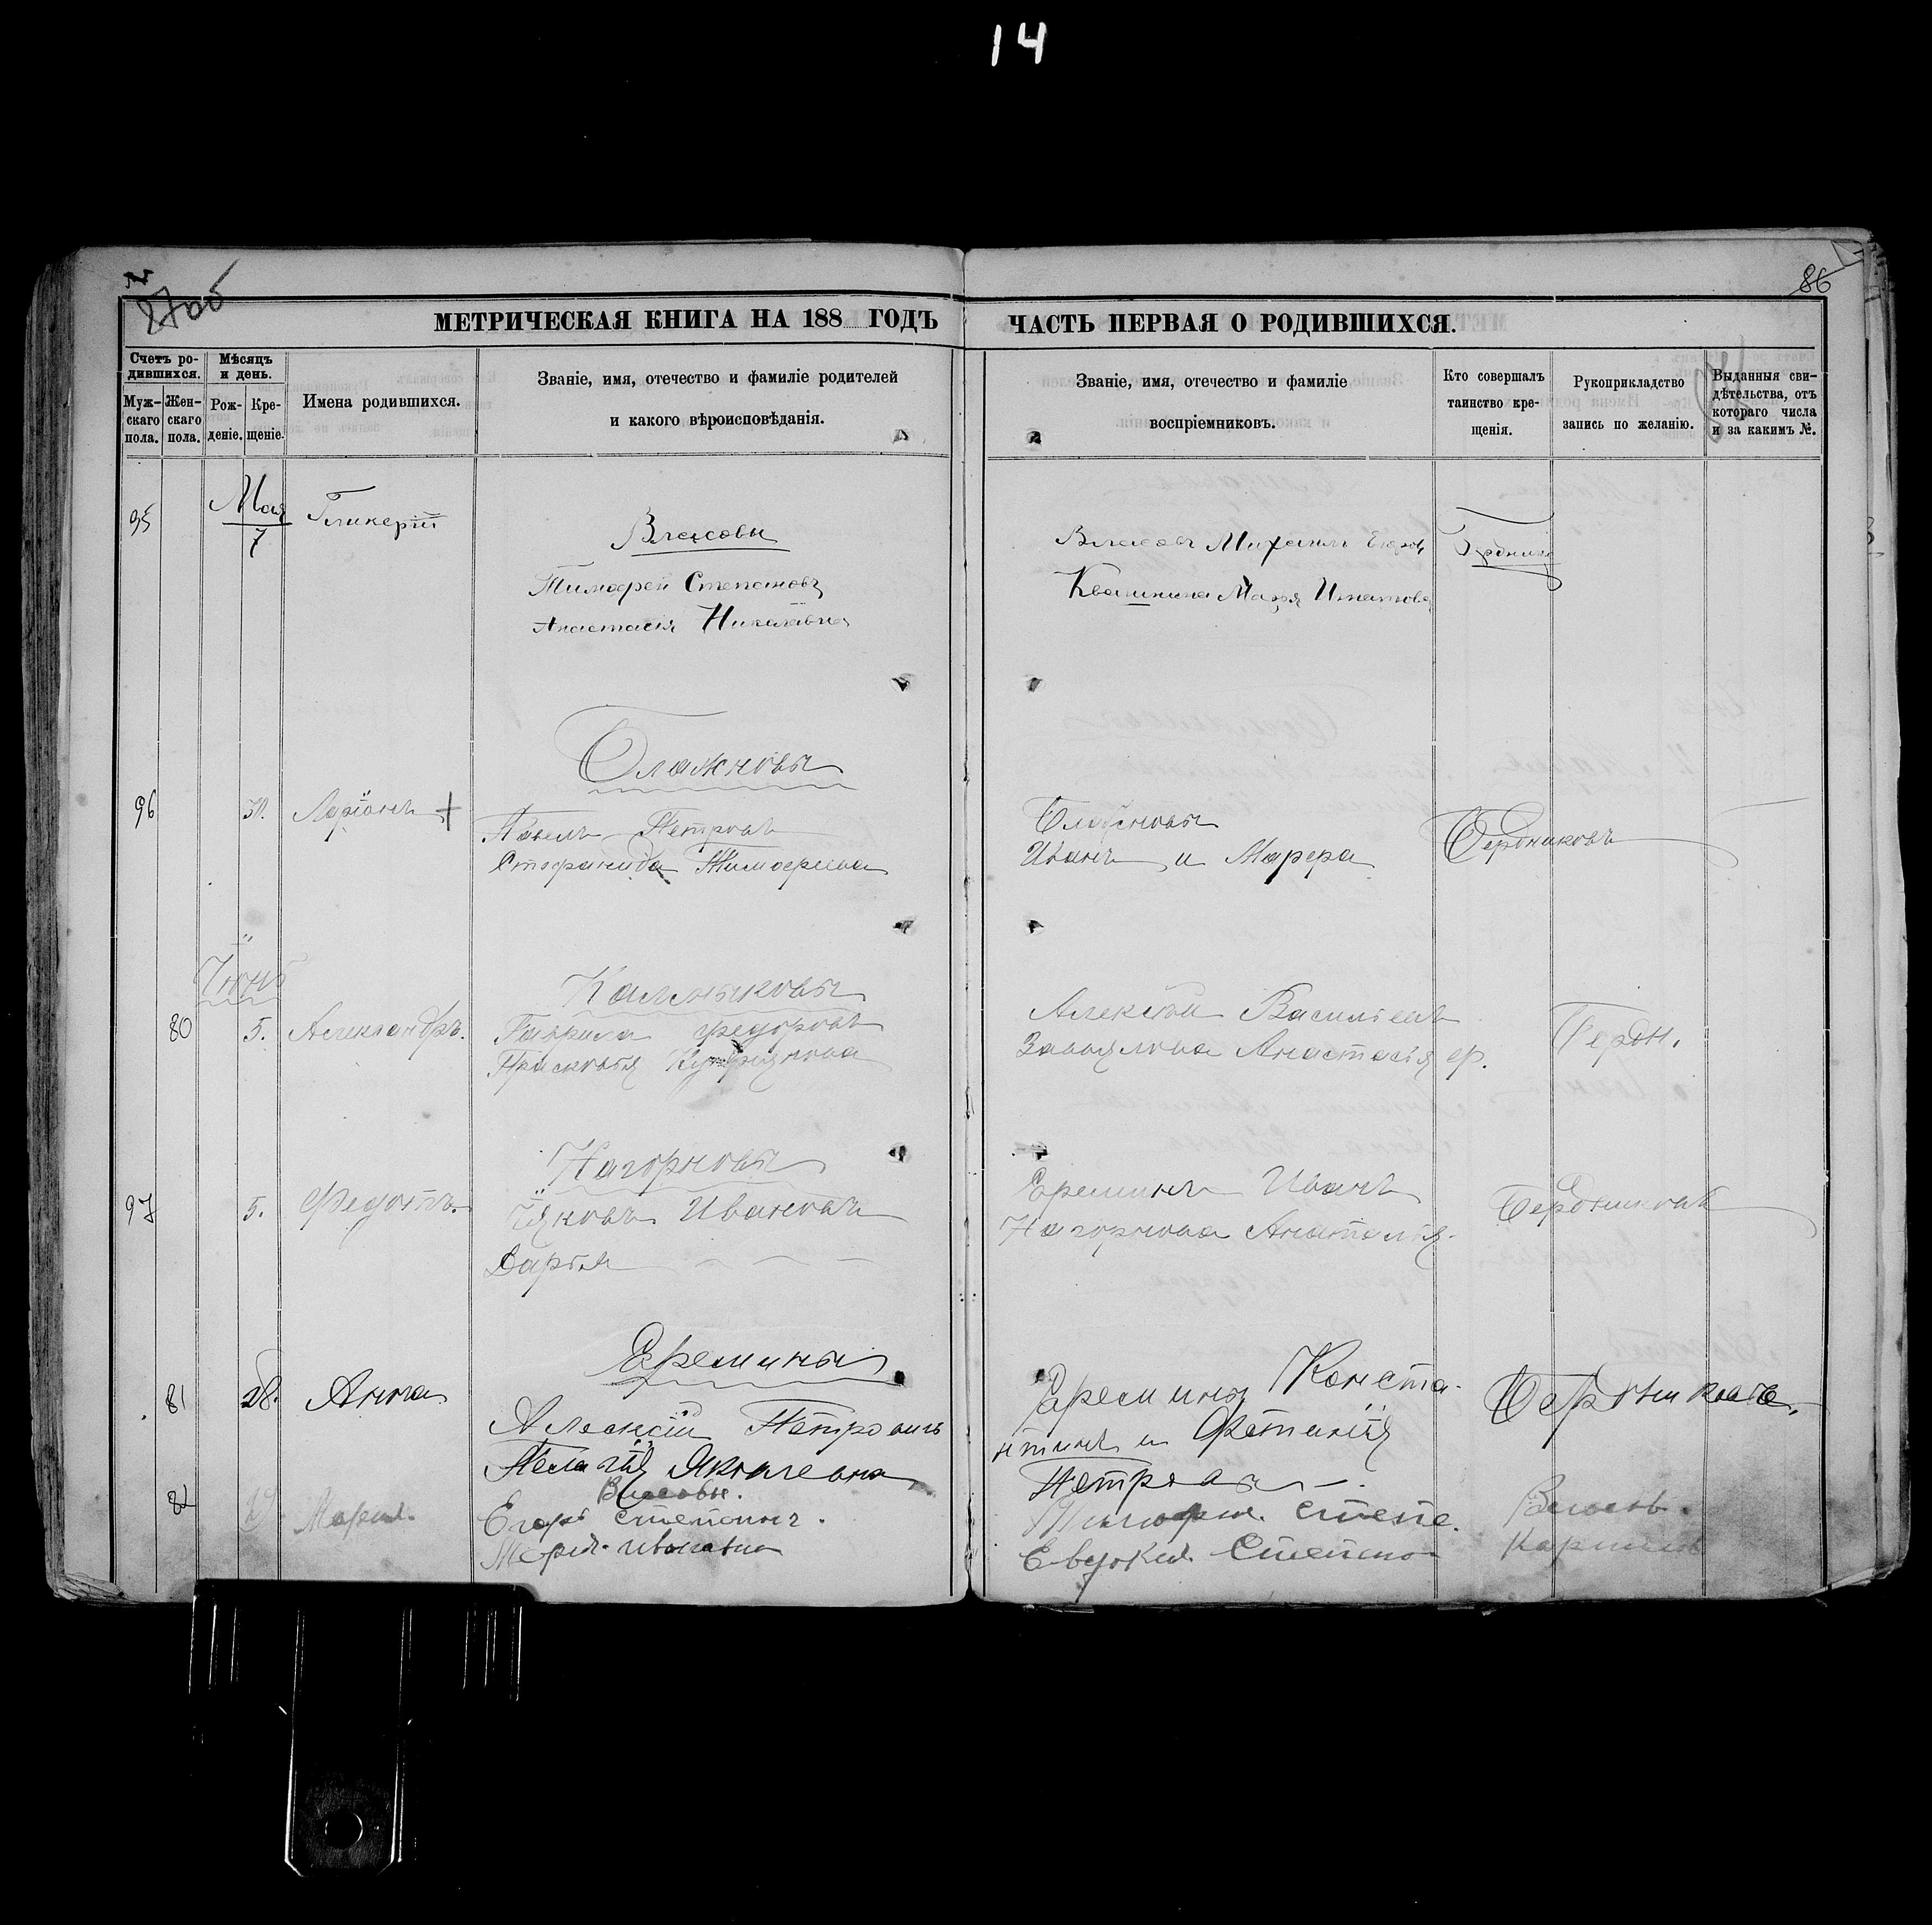 14
86
МЕТРИЧЕСКАЯ КНИГА НА 188 ГОДЪ
ЧАСТЬ ПЕРВАЯ О РОДИВШИХСЯ.
Счетъ ро-
дившихся.
Муж-
скаго
пола.
Жен-
скаго
пола.
Мѣсяцъ
и день.
Рож-
деніе.
Кре-
щеніе.
Имена родившихся.
Званіе, имя, отечество и фамиліе родителей
и какого вѣроисповѣданія.
Званіе, имя, отечество и фамиліе
воспріемниковъ.
Кто совершалъ
таинство кре-
щенія.
Рукоприкладство
запись по желанію.
Выданныя сви-
дѣтельства, отъ
котораго числа
и за какимъ №.
95
Мая
7
Гликерій
Власовы
Тимофей Степановъ
Анастасія Николавна
Власовъ Михаилъ Егоров
Квашнина Марья Игнатова
96
30.
Ларіонъ +
Блажновы
Павелъ Петровъ
Стефанида Тимоферна
Блажновы
Иванъ и Марфа
Бердниковъ
Іюнь
80
5.
Александръ.
Калмыковы
Гаврила Федоровъ
Прасковья
Алексѣй Василіевъ
Завьялова Анастасія ер.
Бердн.
97
5.
Федотъ.
Нагорновы
Яковъ Ивановъ
Дарья
Еремин Иванъ
Нагорнова Анаталья.
Бердниковъ
81
28.
Анна
Еремины
Алексій Петровичъ
Пелагія Яковлевна
Еремины Конста-
нтинъ и Фетинія
Петровы
Бердниковъ.
82
Мария.
Власовы.
Егоръ Степанъ.
Мария. Ивонавна
Тимофей. Степа.
Евдокия. Степано
Власовъ.